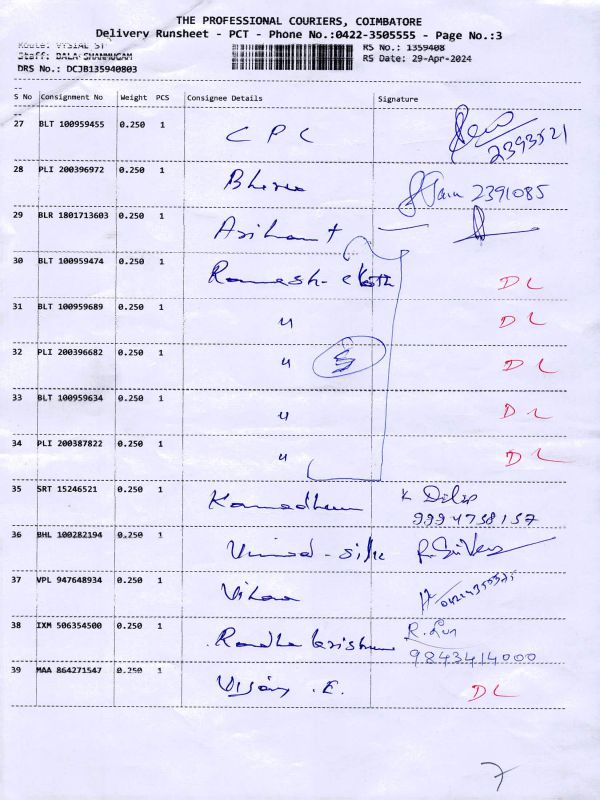 THE PROFESSIONAL COURIERS, COIMBATORE
Delivery Runsheet - PCT - Phone No.:0422-3505555 - Page No.:3
Route: VYSIAL ST RS No.: 1359408
Staff: BALA SHANMUGAM RS Date: 29-Apr-2024
DRS No.: DCJB135940803
S No Consignment No Weight PCS Consignee Details Signature
27 BLT 100959455 0.250 1 C P C
2393521
28 PLI 200396972 0.250 1 2391085
29 BLR 1801713603 0.250 1 Arihant
30 BLT 100959474 0.250 1 Ramesh DL
31 BLT 100959689 0.250 1 〃 DL
32 PLI 200396682 0.250 1 〃 5 DL
33 BLT 100959634 0.250 1 〃 DL
34 PLI 200387822 0.250 1 〃 DL
35 SRT 15246521 0.250 1 Kamadhenu K Dilip
9994758157
36 BHL 100282194 0.250 1
37 VPL 947648934 0.250 1
38 IXM 506354500 0.250 1 Radha Krishna
9843414000
39 MAA 864271547 0.250 1 Vijay .E. DL
7